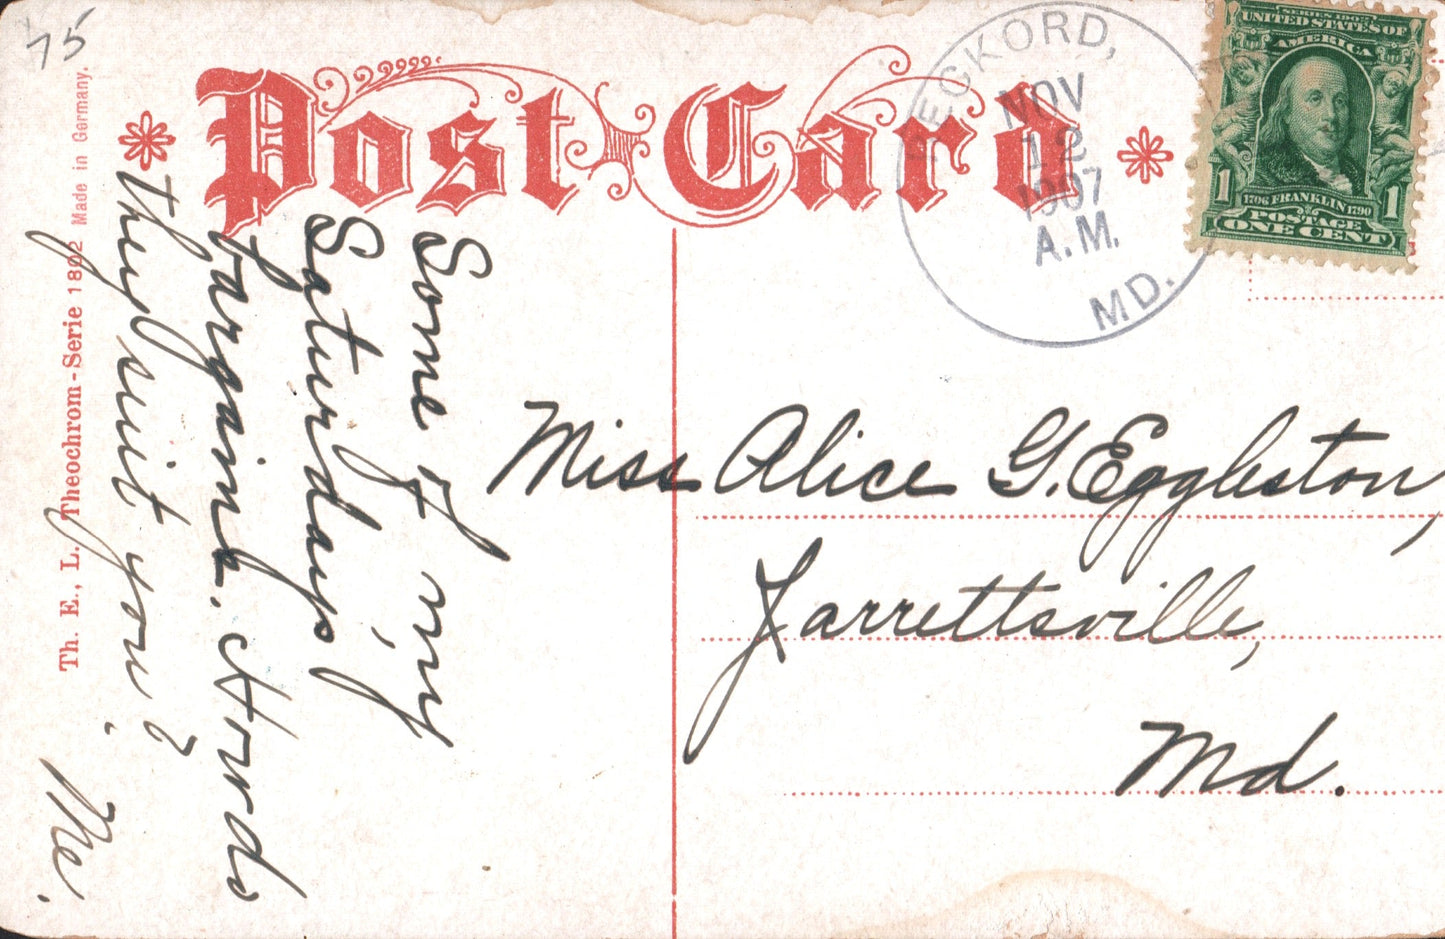 75
Post Card
NOV
12
1907
A.M.
MD.
SERIES 1902
UNITED STATES OF
AMERICA
1 1
1706 FRANKLIN 1790
POSTAGE
ONE CENT
Th. E., L. Theochrom-Serie 1802 Made in Germany.
Some of my
Saturdays
bargains. How do
they suit you?
Me.
Miss Alice G. Eggleston,
Jarrettsville,
Md.